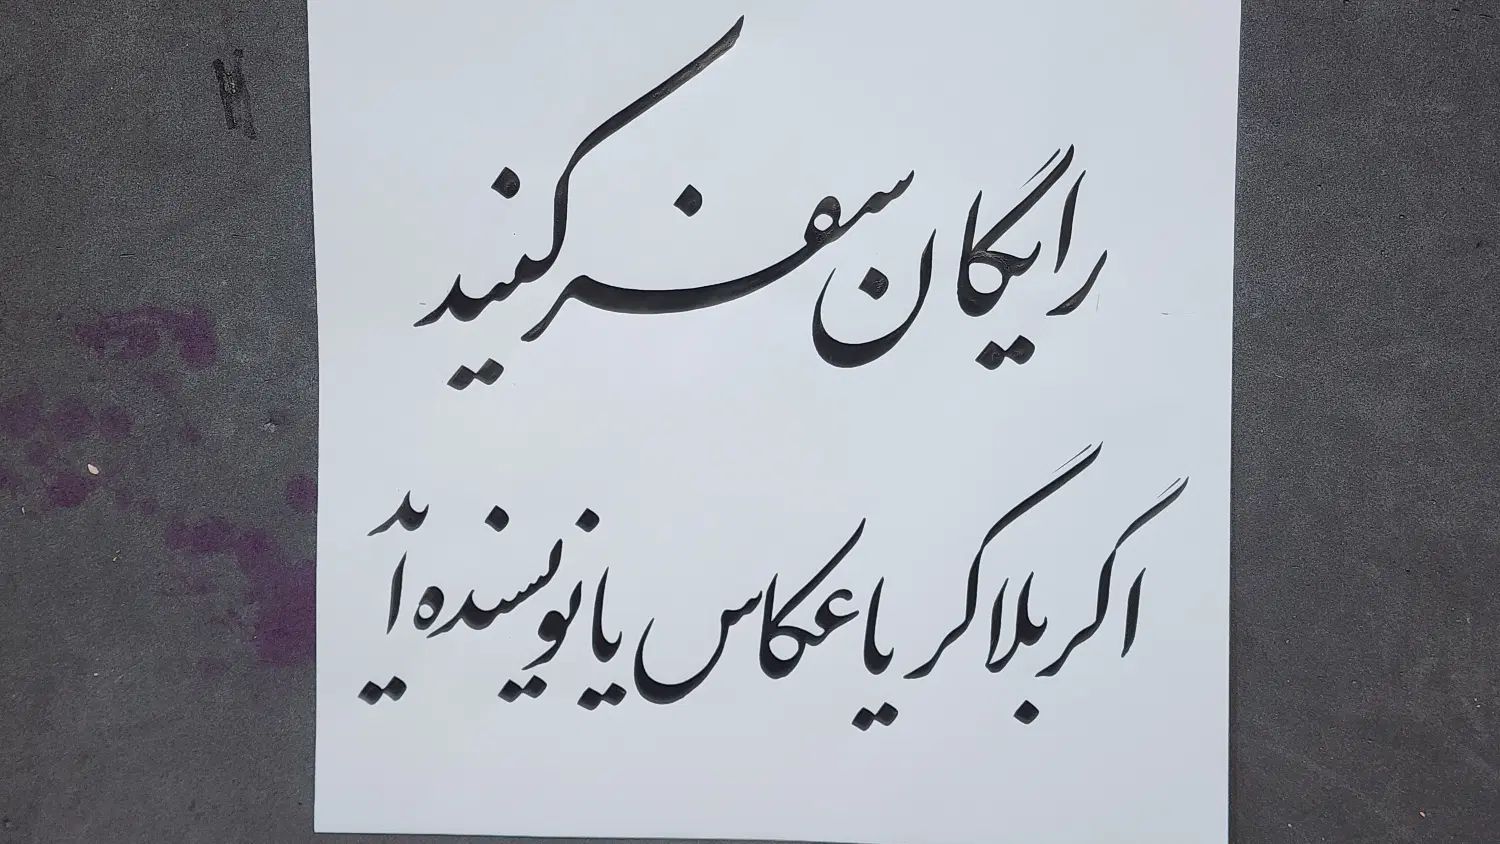 رایگان سفر کنید
اگر بلاگر یا عکاس یا نویسنده اید